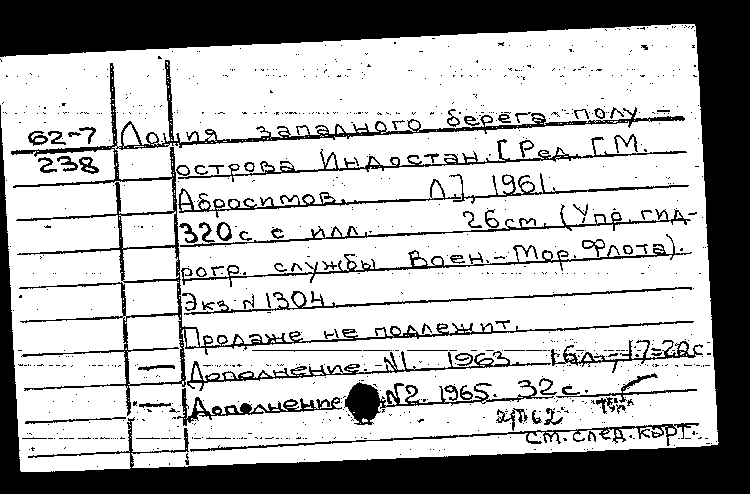 62-7
238
Лоция западного берега полу-
острова Индостан. [Ред. Г.М.
Абросимов. Л], 1961.
320 с. с илл. 26 см. (Упр. гид-
рогр. службы Воен.-Мор. Флота).
Экз. N 1304.
Продаже не подлежит.
— Дополнение N1. 1963. 17-20 с.
— Дополнение N2. 1965. 32 с.
см. след. карт.